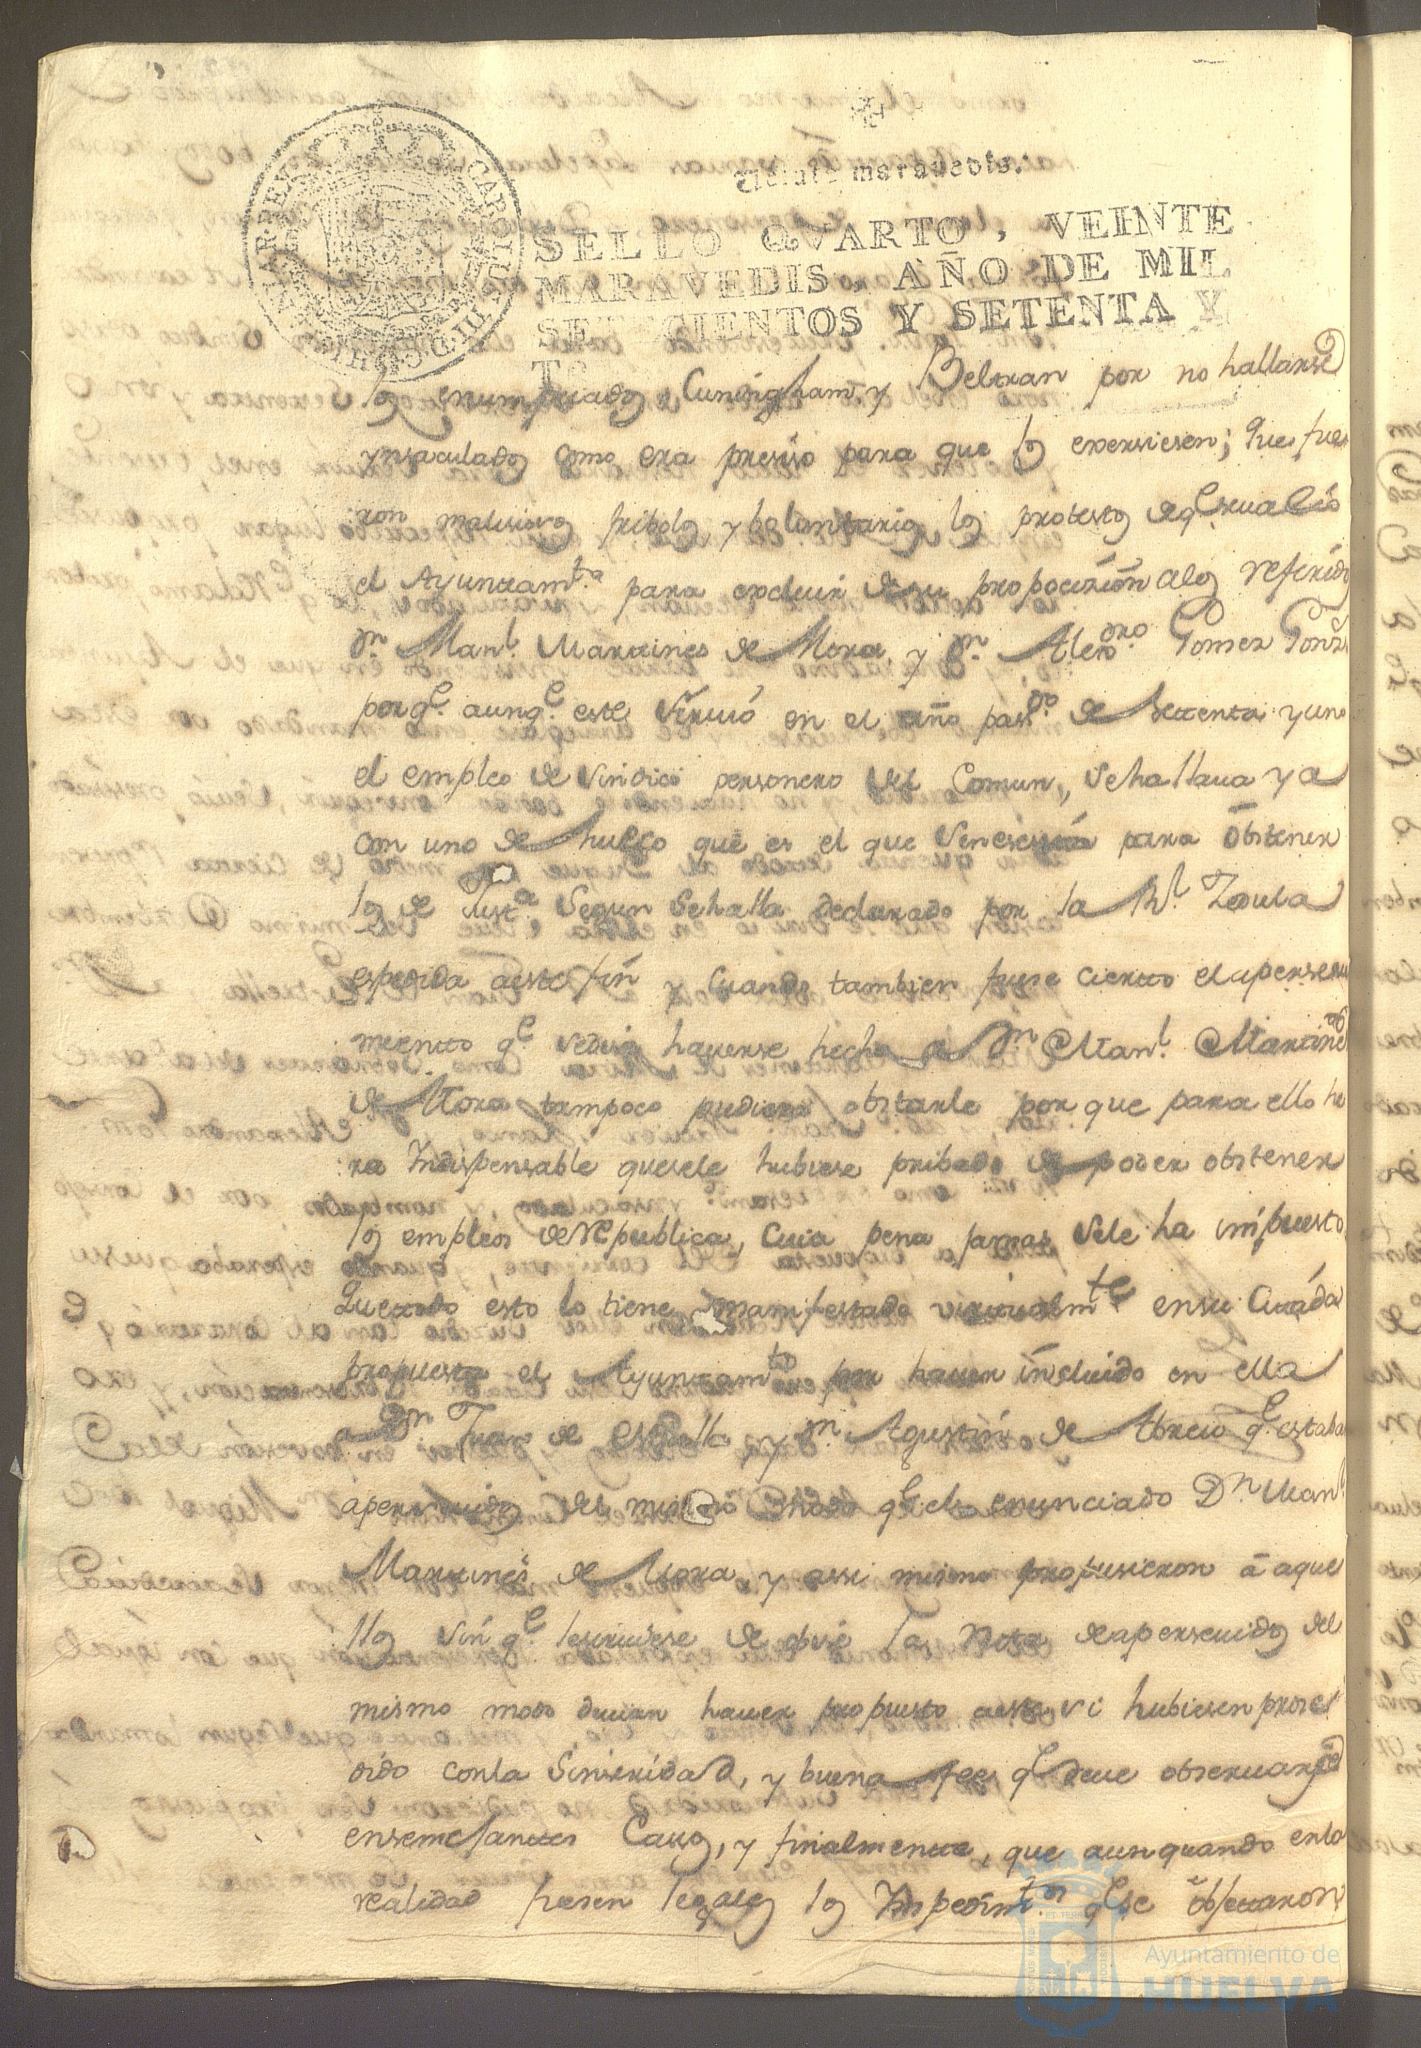 CAROLUS III D G HISPANIAR REX
maravedis.
SELLO QVARTO, VEINTE
MARAVEDIS, AÑO DE MIL
SETECIENTOS Y SETENTA Y
los enumpciados Cuningham, y Beltran por no hallarse
ynsaculados como era presiso para que los exersiesen; Que fue
ron malisiosos fribolos y boluntarios los protestos deqᵉ se valió
el Ayuntamᵗᵒ para excluir de su propocizión alos referidos
Dⁿ Manˡ Martines de Mora, y Dⁿ Alexᵈʳᵒ Gomez Gonzˢ
porqᵉ aunqᵉ este Sirvió en el año passᵈᵒ de Settenta y uno
el empleo de Sindico personero del Comun, Se hallava ya
con uno de hueco que es el que Senesessita para obtener
los de Justᵃ Segun Sehalla declarado por la Rˡ Zedula
espedida aeste fin y Cuando tambien fuese cierto el apersevi
miento qᵉ sedisia haverse hecho a Dⁿ Manˡ Martines
de Mora tampoco pudiera obstarle por que para ello he
ra Yndispensable quesele hubiese pribado de poder obtener
los empleos deRepublica, Cuia pena jamas Sele ha impuesto
Quetodo esto lo tiene manifestado virtualmᵗᵉ ensu Citáda
propuesta el Ayuntamᵗᵒ por haver íncluido en ella
a Dⁿ Juan de Estrella y Dⁿ Agustín de Abreu qᵉ estaba
apersevidos del mismo modo qᵉ el enunciado Dⁿ Manˡ
Martines de Mora y assi mismo propusieron á aque
llos sin qᵉ lesirviese de obise las Nota deapersevidos del
mismo modo devian haver propuesto aeste si hubiesen proce
dido conla Sinseridad, y buena fee qᵉ deve observarse
ensemejantes Casos, y finalmente, que aun quando enla
realidad fuesen legales los Ympedimᵗᵒˢ qᵉ se objectaron
Ayuntamiento de
HUELVA